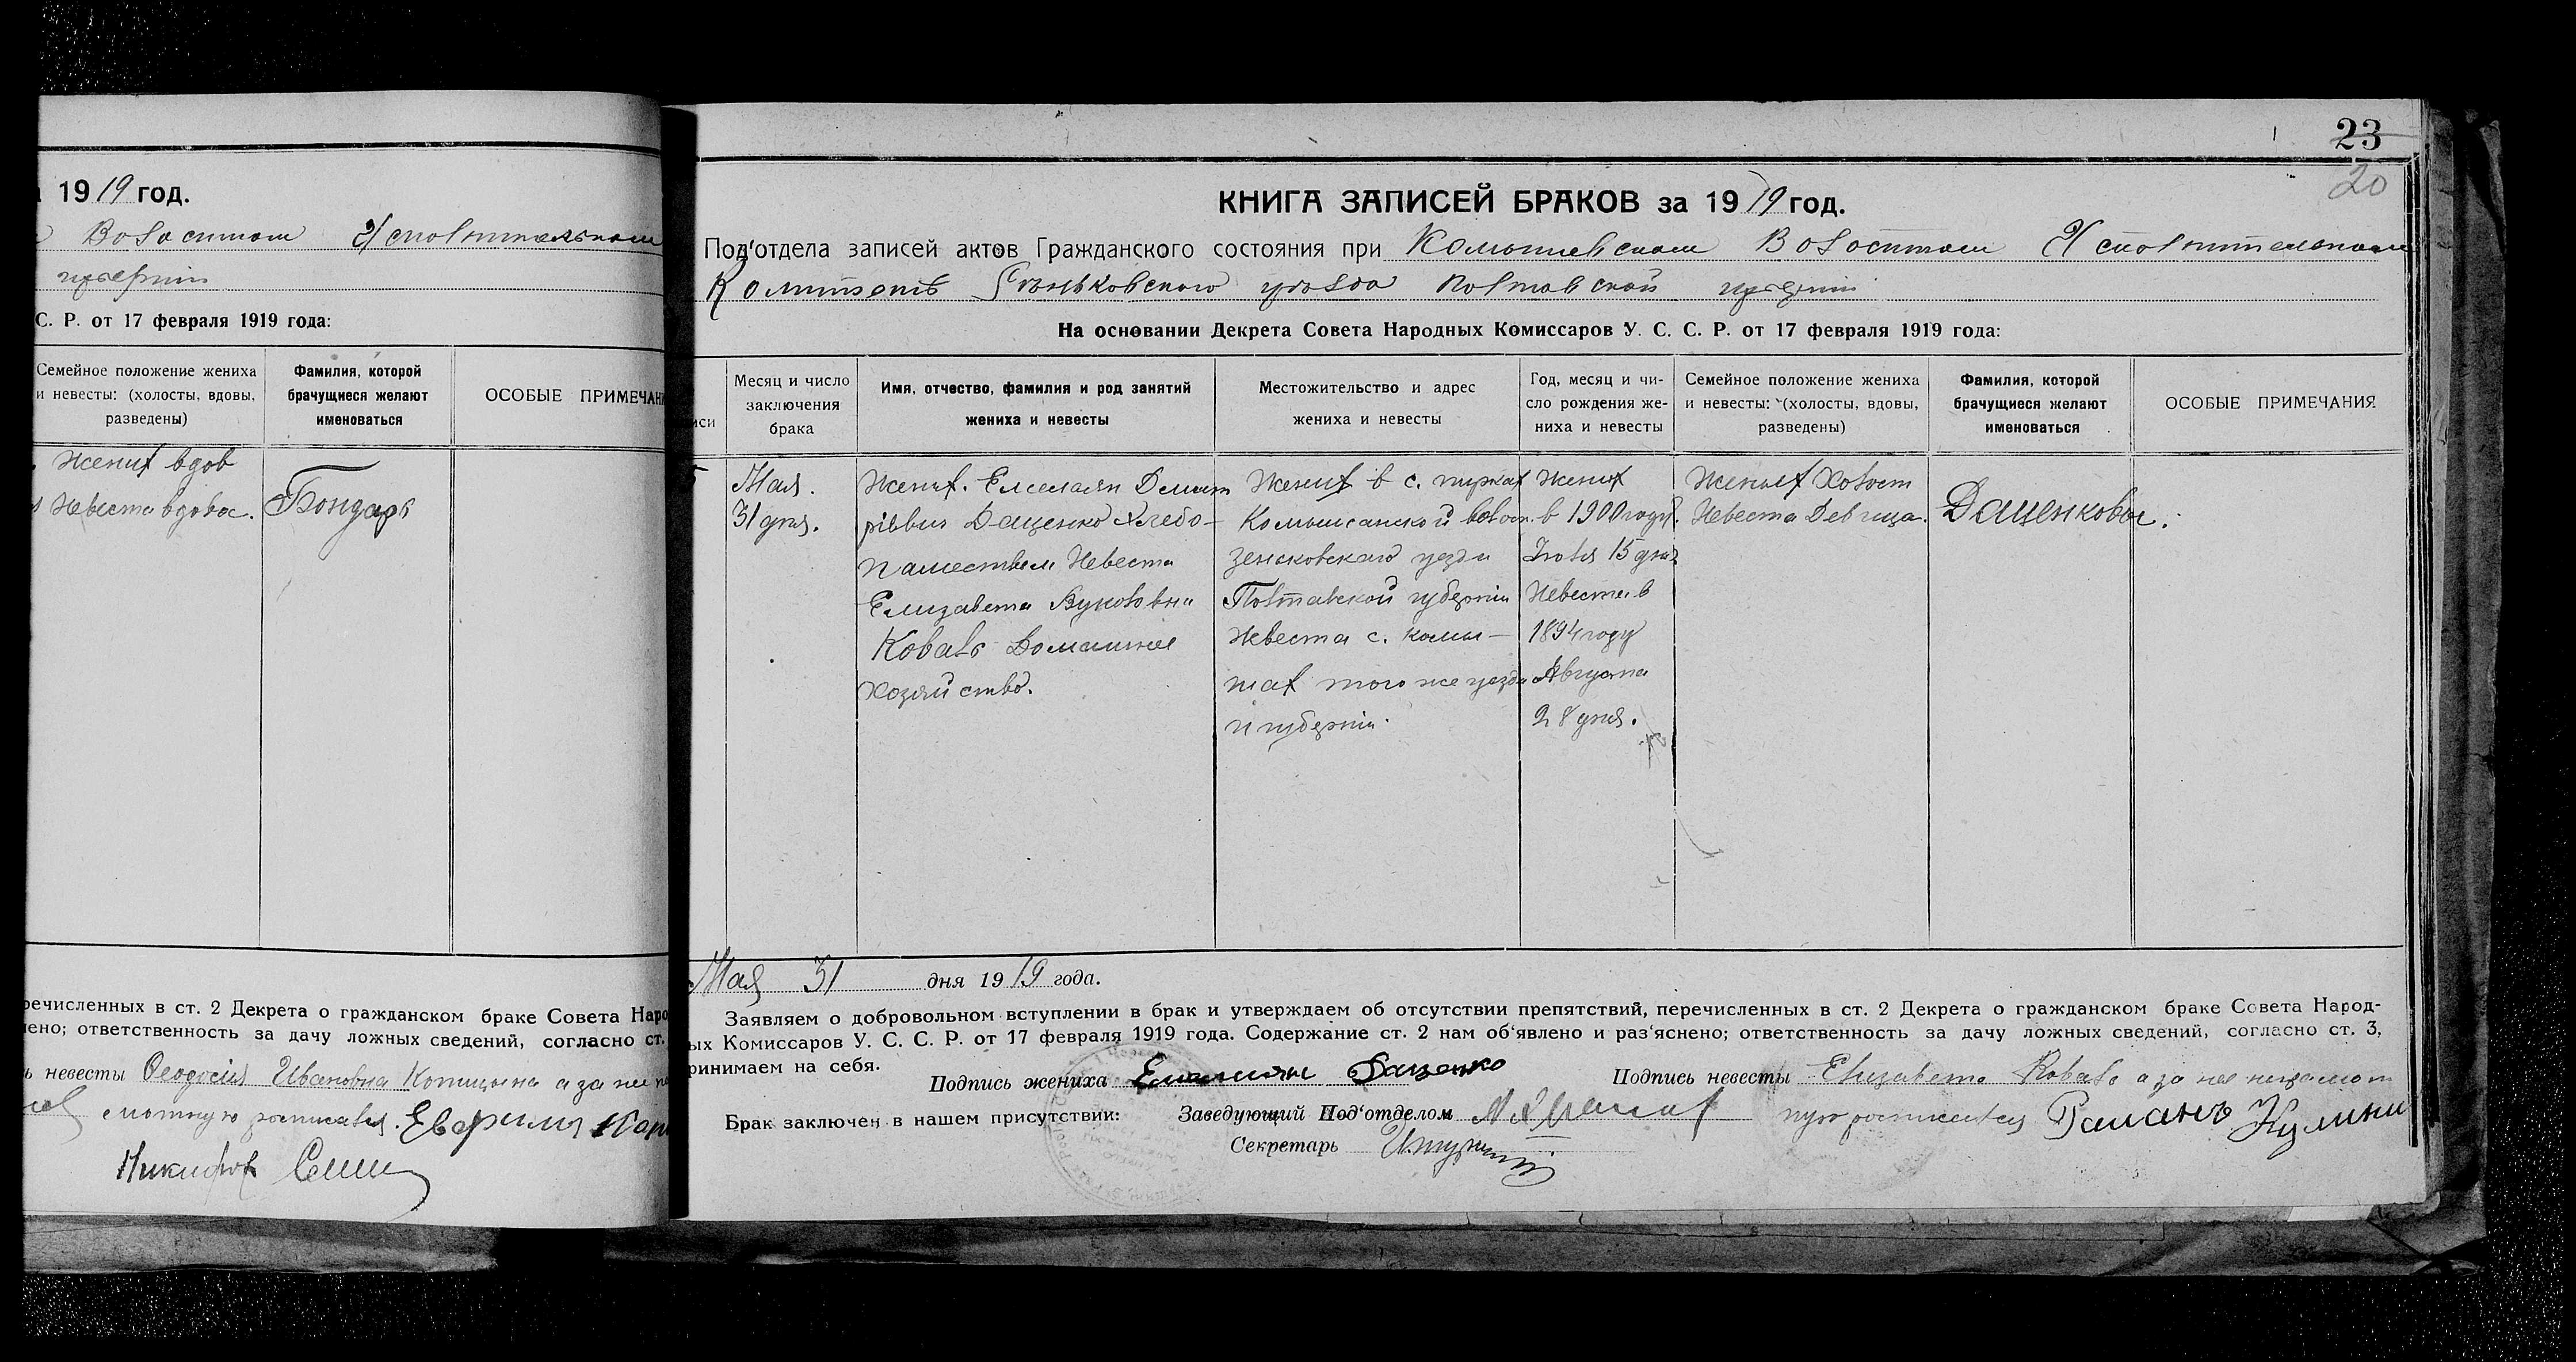 1919 год.
Волостном Исполнительном
губернии
С. Р. от 17 февраля 1919 года:
Семейное положение жениха и невесты: (холосты, вдовы, разведены)
Фамилия, которой брачущиеся желают именоваться
ОСОБЫЕ ПРИМЕЧАНИ
Жених вдов
Невеста вдова.
Бондарь
речисленных в ст. 2 Декрета о гражданском браке Совета Наро
ено; ответственность за дачу ложных сведений, согласно ст.
ь невесты Феодосия Ивановна а за не
росписався.
Никифор
23
20
КНИГА ЗАПИСЕЙ БРАКОВ за 1919 год.
Под'отдела записей актов Гражданского состояния при Комышевском Волостном Исполнительном
Комитетъ Зѣньковского уѣзда Полтавской губернии
На основании Декрета Совета Народных Комиссаров У. С. С. Р. от 17 февраля 1919 года:
иси
Месяц и число заключения брака
Имя, отчество, фамилия и род занятий жениха и невесты
Местожительство и адрес жениха и невесты
Год, месяц и число рождения жениха и невесты
Семейное положение жениха и невесты: (холосты, вдовы, разведены)
Фамилия, которой брачущиеся желают именоваться
ОСОБЫЕ ПРИМЕЧАНИЯ
5
Мая.
31 дня.
Жених. Емельян Димит
ріевич Даценко Хлебо-
пашеством Невеста
Елизавета Вуколовна
Коваль Домашнее
Хозяйство.
Жених в с.
Комышанской волост.
Зеньковскаго уезда
Полтавской губерніи
Невеста с. Комы-
шах того же уезда
и губерніи.
Жених
в 1900 году.
Июля 15 дня
Невеста в
1894 году
Августа
28 дня.
Жених Холост
Невеста Девица.
Даценковы.
Мая 31 дня 1919 года.
Заявляем о добровольном вступлении в брак и утверждаем об отсутствии препятствий, перечисленных в ст. 2 Декрета о гражданском браке Совета Народ-
ых Комиссаров У. С. С. Р. от 17 февраля 1919 года. Содержание ст. 2 нам об'явлено и раз'яснено; ответственность за дачу ложных сведений, согласно ст. 3,
ринимаем на себя.
Подпись жениха Емельян Даценко
Подпись невесты Елизавета Коваль а за нее неграмот
ную росписался Раманъ
Брак заключен в нашем присутствии:
Заведующий Под'отделом
Секретарь